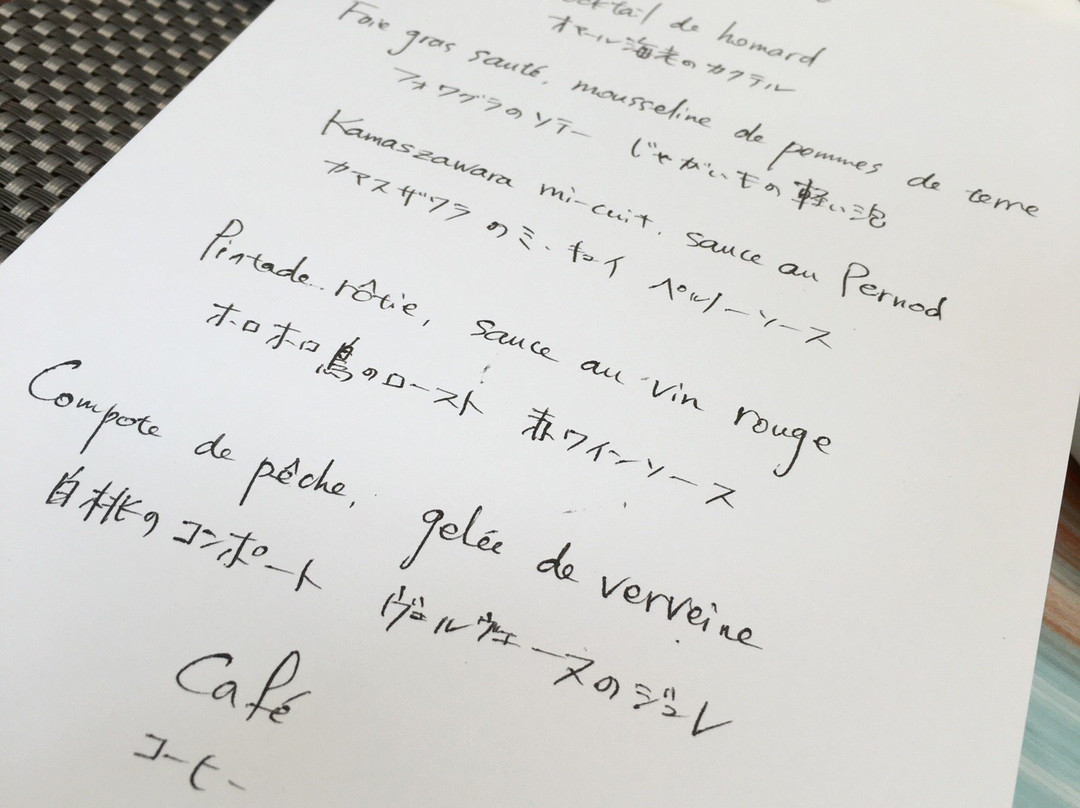 cocktail de homard
オマール海老のカクテル
Foie gras sauté, mousseline de pommes de terre
フォワグラのソテー じゃがいもの軽い泡
Kamaszawara mi-cuit, sauce au Pernod
カマスザワラのミ・キュイ ペルノーソース
Pintade rôtie, sauce au vin rouge
ホロホロ鳥のロースト 赤ワインソース
Compote de pêche, gelée de verveine
白桃のコンポート ヴェルヴェーヌのジュレ
Café
コーヒー